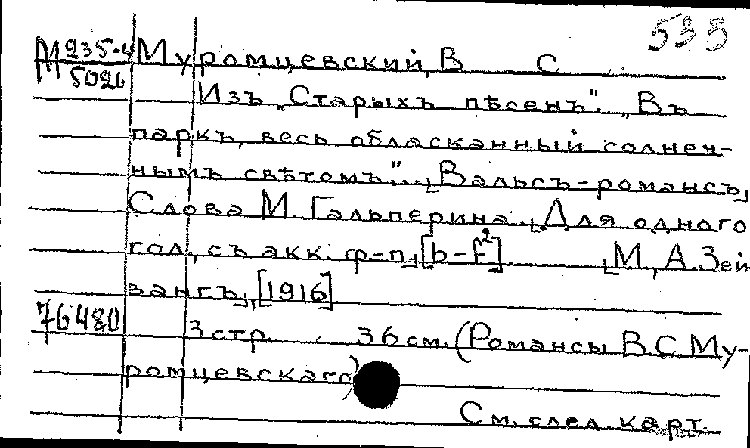 535
М235-4 Муромцевский, В С.
5026
Изъ „Старыхъ пѣсенъ". „Въ
паркъ, весь обласканный солнеч-
нымъ свѣтомъ"... Вальсъ-романсъ,
Слова М. Гальперина. Для одного
гол., съ акк. ф-п., [b-f²] М., А. Зей
вангъ, [1916]
76480 3 стр. 36 см. (Романсы В. С. Му-
ромцевскаго)
См. след. карт.